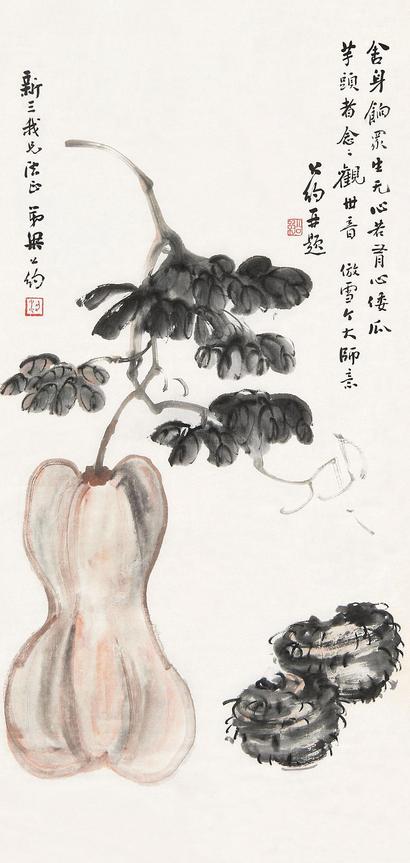 舍身餉眾生无心若有心倭瓜
芋頭者念念觀世音 倣雪个大師意
公約再題
新三我兄法正 弟梁公約